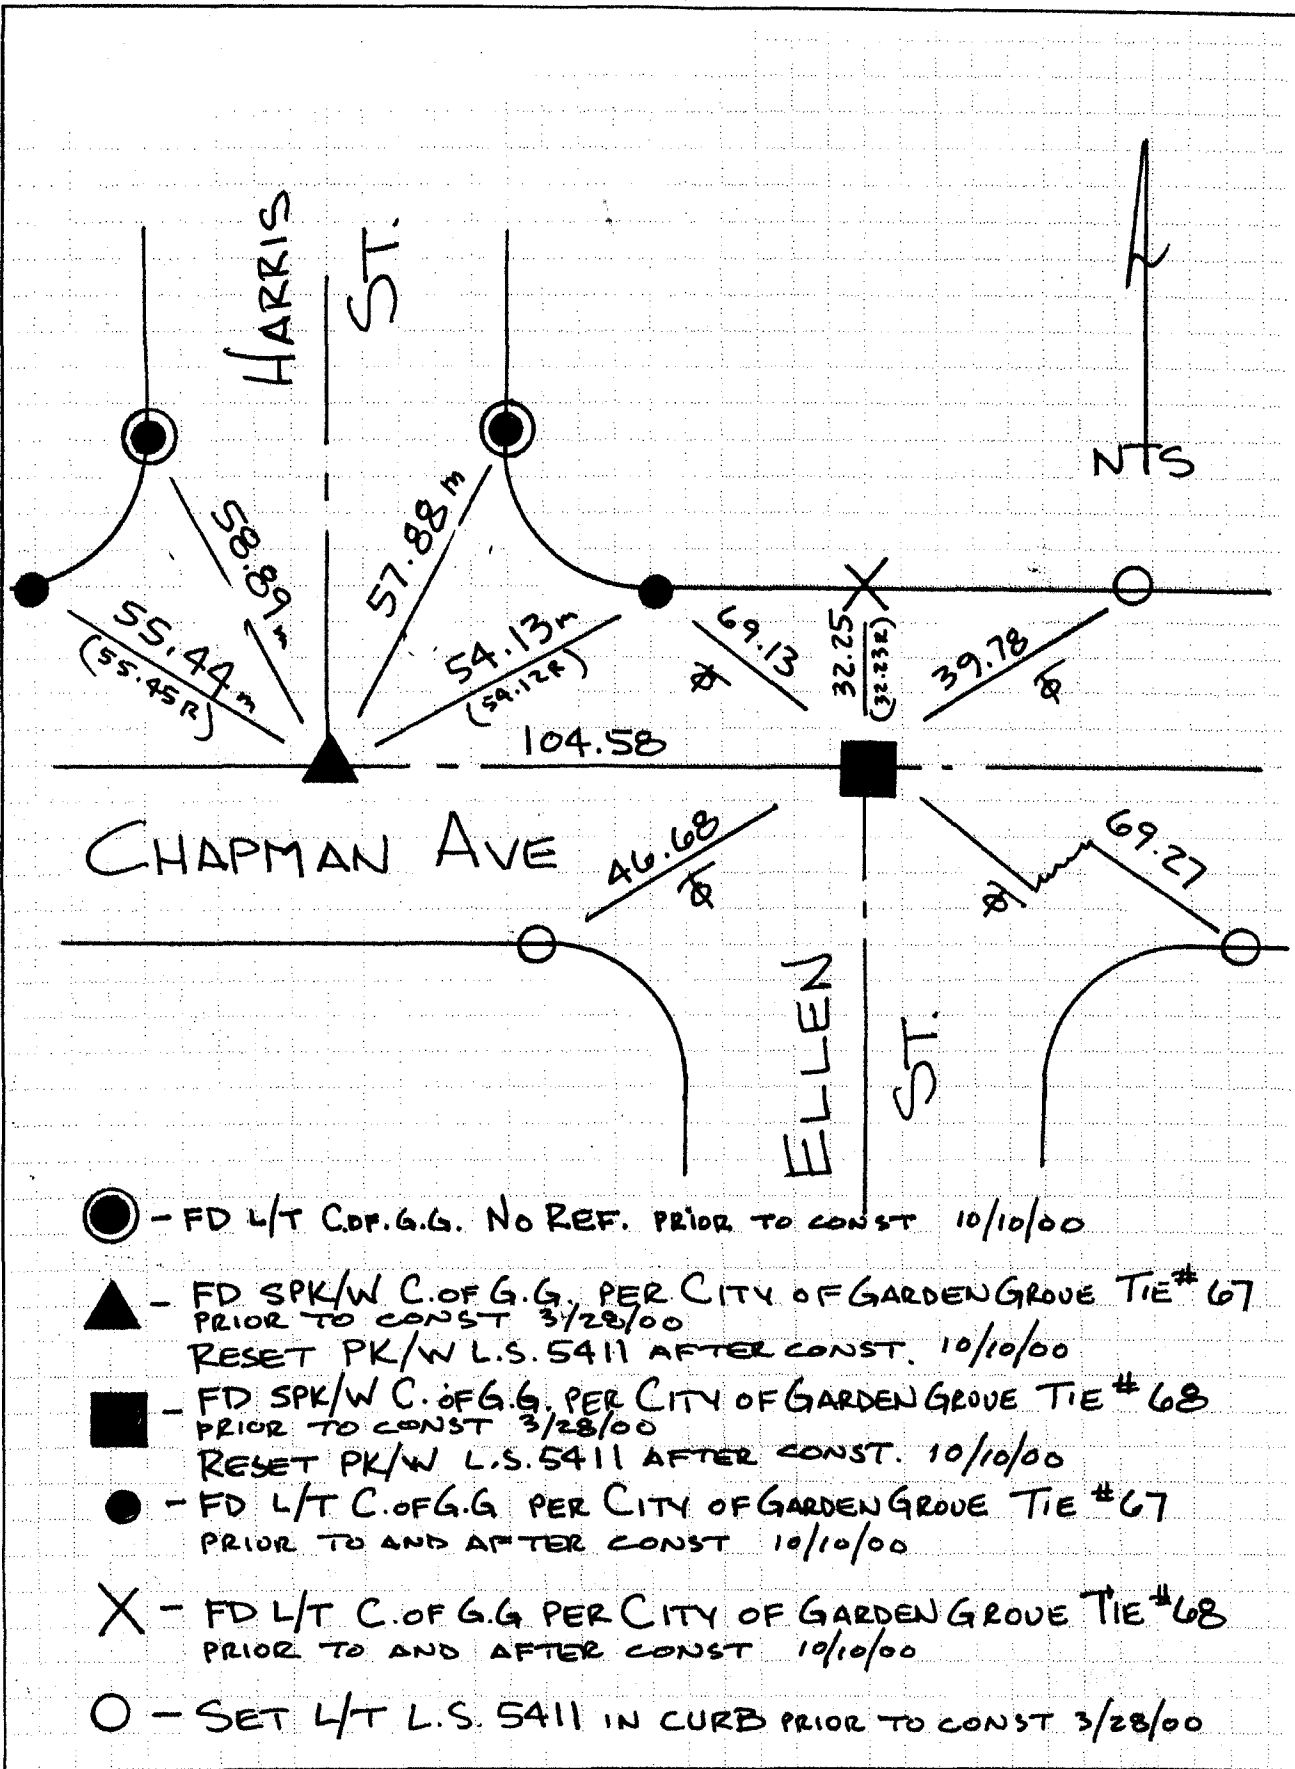 HARRIS
ST.
NTS
58.89 m
57.88 m
55.44 m
(55.45R)
54.13 m
(54.12R)
69.13
32.25
(32.23R)
39.78
104.58
CHAPMAN AVE
46.68
69.27
ELLEN
ST.
- FD L/T C.OF.G.G. NO REF. PRIOR TO CONST 10/10/00
- FD SPK/W C.OF G.G. PER CITY OF GARDEN GROVE TIE # 67
PRIOR TO CONST 3/28/00
RESET PK/W L.S. 5411 AFTER CONST. 10/10/00
- FD SPK/W C.OF G.G. PER CITY OF GARDEN GROVE TIE # 68
PRIOR TO CONST 3/28/00
RESET PK/W L.S. 5411 AFTER CONST. 10/10/00
- FD L/T C.OF G.G PER CITY OF GARDEN GROVE TIE #67
PRIOR TO AND AFTER CONST 10/10/00
- FD L/T C.OF G.G PER CITY OF GARDEN GROVE TIE #68
PRIOR TO AND AFTER CONST 10/10/00
- SET L/T L.S. 5411 IN CURB PRIOR TO CONST 3/28/00